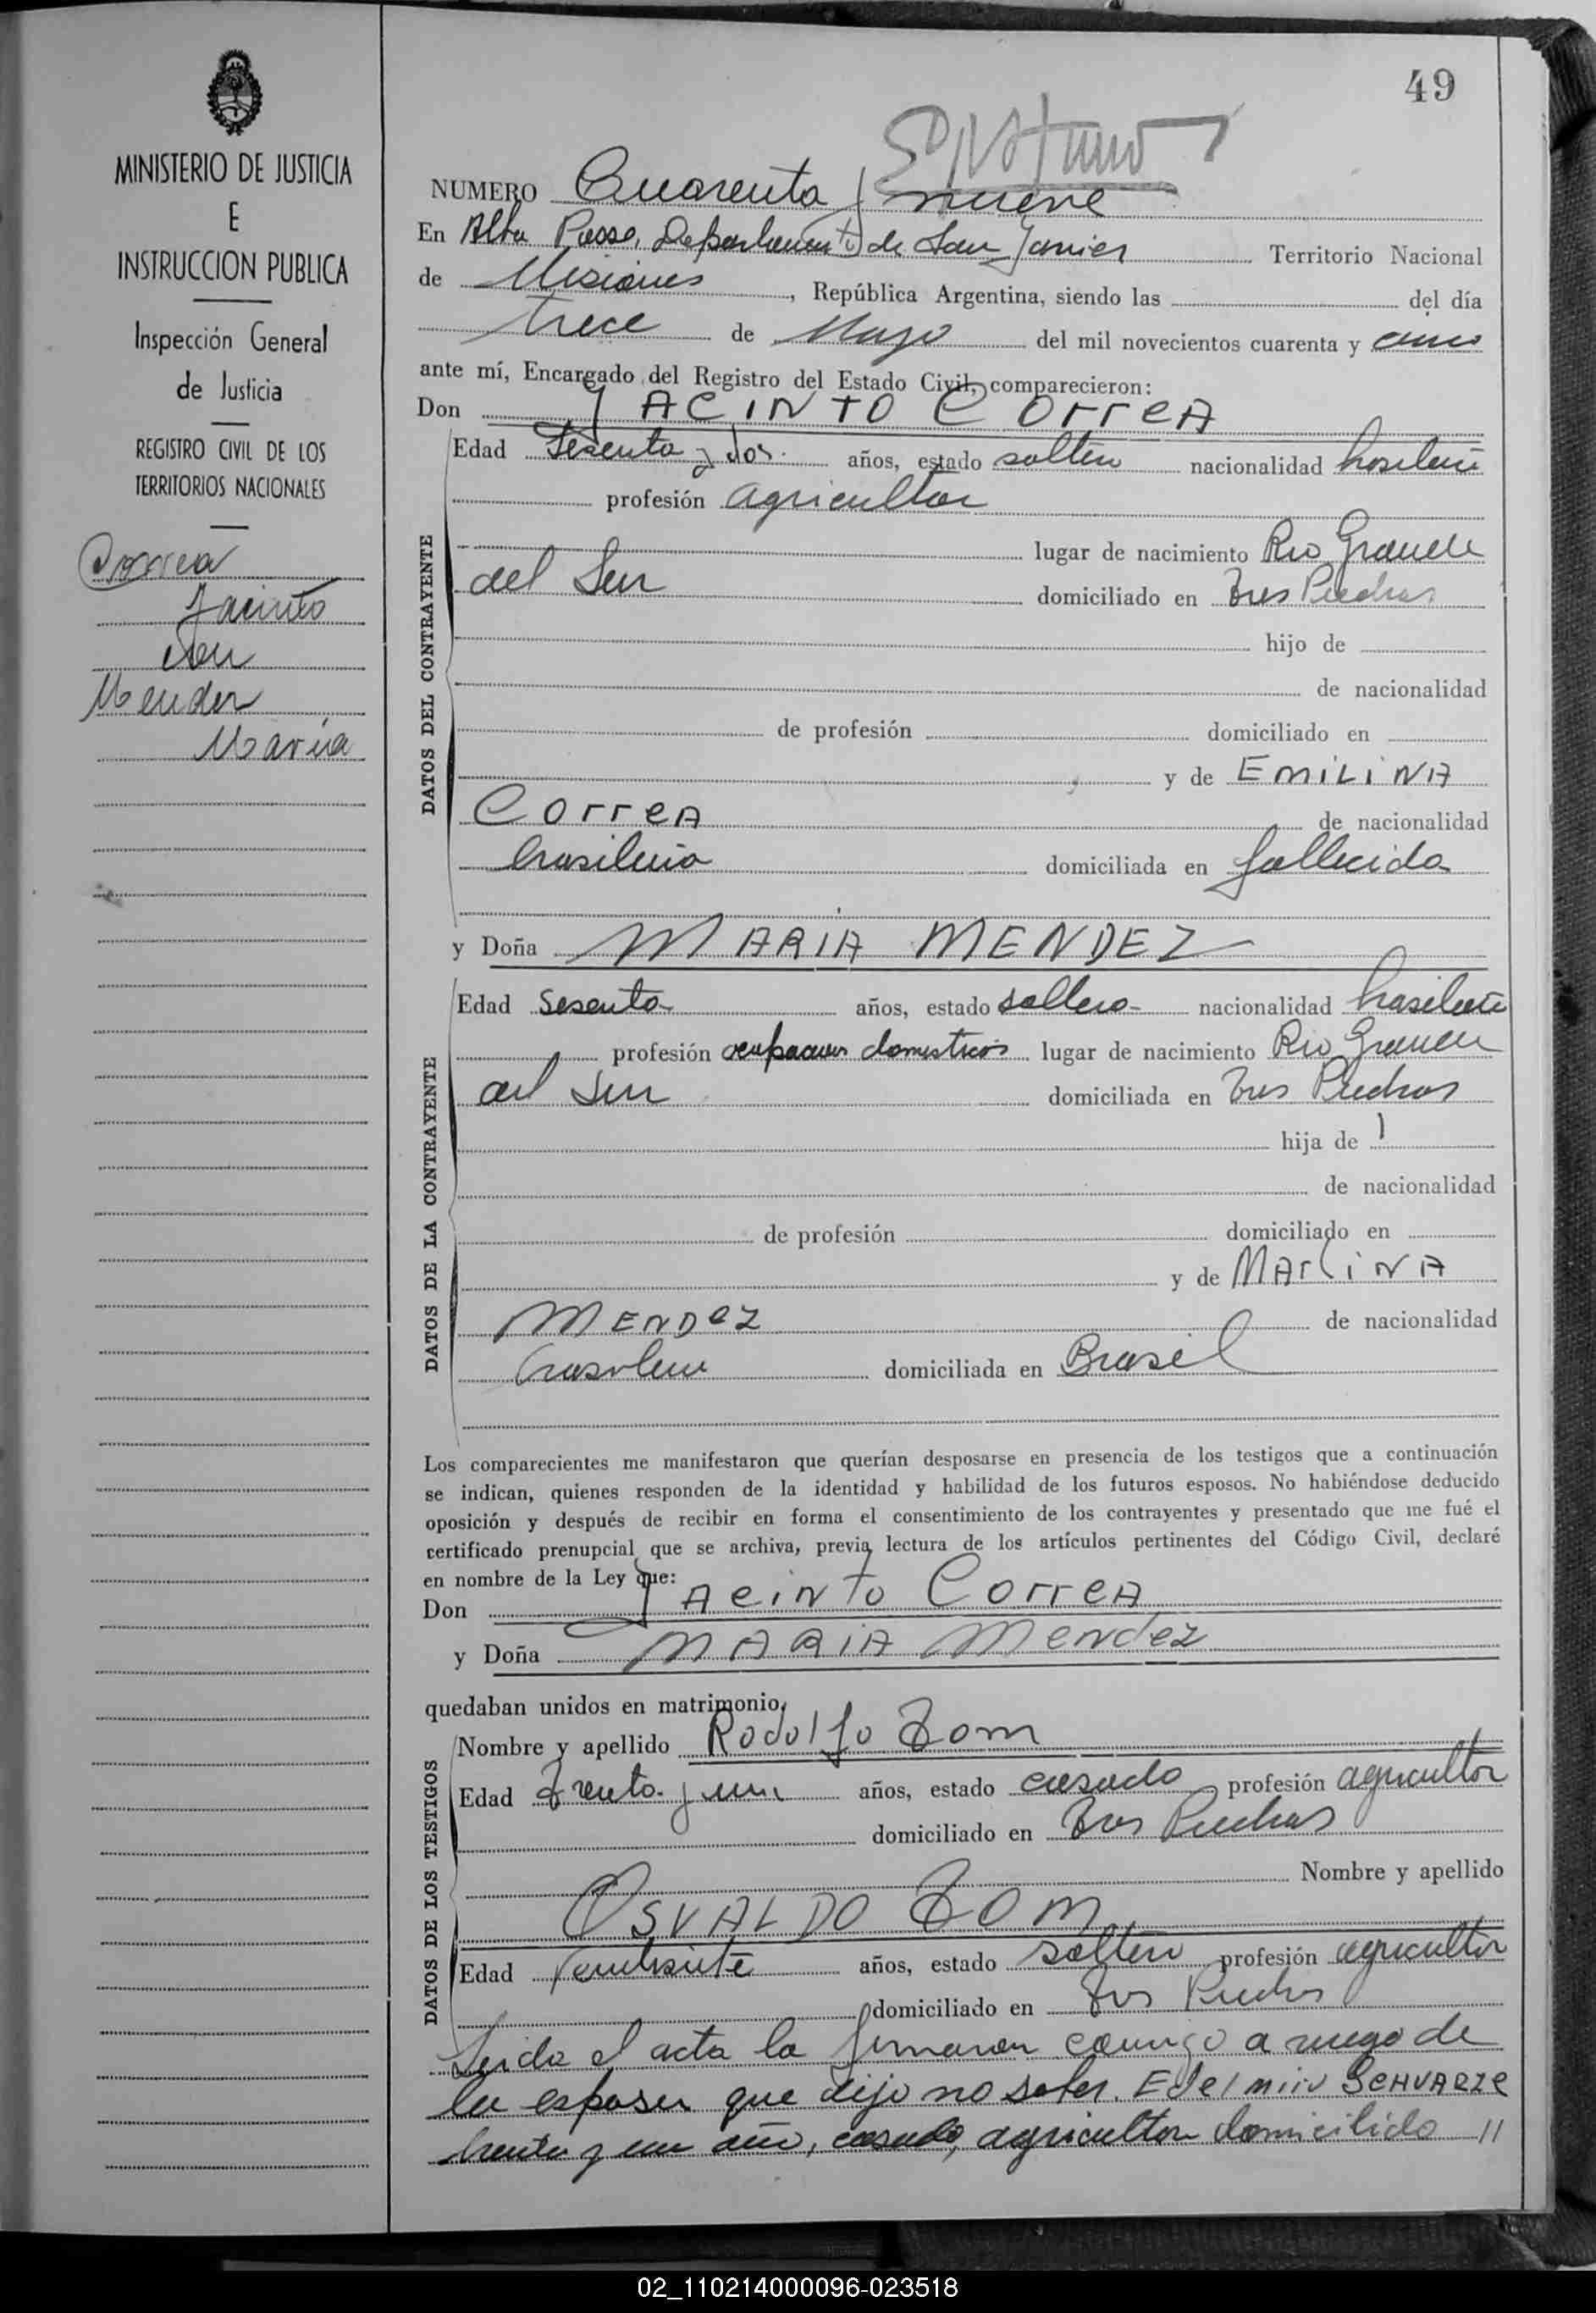 49
MINISTERIO DE JUSTICIA
E
INSTRUCCION PUBLICA
Inspección General
de Justicia
REGISTRO CIVIL DE LOS
TERRITORIOS NACIONALES
Correa
Jacinto
con
Mendez
Maria
NUMERO Cuarenta y nueve
En Alba Posse, Departamento de San Javier Territorio Nacional
de Misiones, República Argentina, siendo las del día
trece de Mayo del mil novecientos cuarenta y cinco
ante mí, Encargado del Registro del Estado Civil, comparecieron:
Don JACINTO CorreA
DATOS DEL CONTRAYENTE
Edad Sesenta y dos años, estado soltero nacionalidad brasileño
profesión agricultor
lugar de nacimiento Rio Grande
del Sur domiciliado en Tres Piedras
hijo de
de nacionalidad
de profesión domiciliado en
y de EmiLiNA
CorreA de nacionalidad
brasileña domiciliada en fallecida
y Doña MARIA MENDEZ
DATOS DE LA CONTRAYENTE
Edad Sesenta años, estado soltera nacionalidad brasileña
profesión ocupaciones domesticas lugar de nacimiento Rio Grande
del Sur domiciliada en Tres Piedras
hija de
de nacionalidad
de profesión domiciliado en
y de
MENDeZ de nacionalidad
brasileña domiciliada en Brasil
Los comparecientes me manifestaron que querían desposarse en presencia de los testigos que a continuación
se indican, quienes responden de la identidad y habilidad de los futuros esposos. No habiéndose deducido
oposición y después de recibir en forma el consentimiento de los contrayentes y presentado que me fué el
certificado prenupcial que se archiva, previa lectura de los artículos pertinentes del Código Civil, declaré
en nombre de la Ley que:
Don JAcinto CorreA
y Doña MARiA Mendez
quedaban unidos en matrimonio.
DATOS DE LOS TESTIGOS
Nombre y apellido Rodolfo Tom
Edad Treinta y un años, estado casado profesión agricultor
domiciliado en Tres Piedras
Nombre y apellido
OSVALDO TOM
Edad Veintisiete años, estado soltero profesión agricultor
domiciliado en Tres Piedras
Leida el acta la firmaron conmigo a ruego de
la esposa que dijo no saber. Edelmiro SCHVARZe
treinta y un año, casado, agricultor domicilido //
02_110214000096-023518